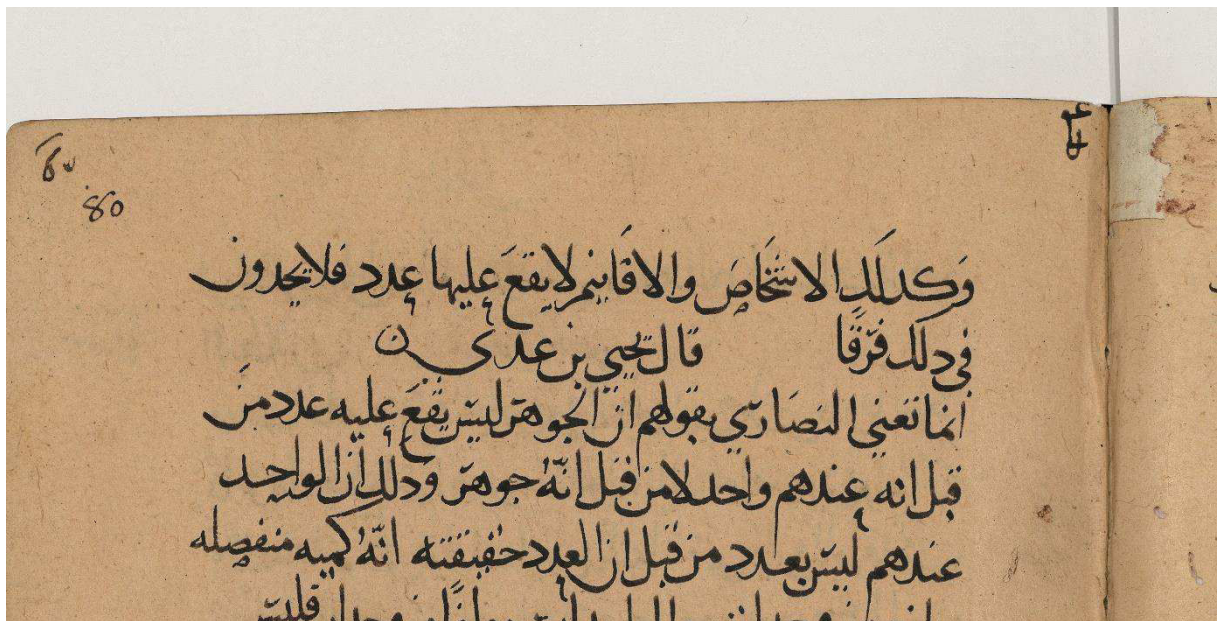 80
وكدلك الاشخاص والاقانيم لا يقع عليها عدد فلا يجدون
في دلك فرقا قال يحيي بن عدي
انما تعني النصاري بقولهم ان الجوهر ليس يقع عليه عدد من
قبل انه عندهم واحد لا من قبل انه جوهر ودلك ان الواحد
عندهم ليس بعدد من قبل ان العدد حقيقته انه كميه منفصله